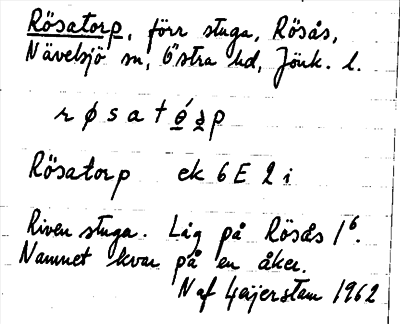 Rösatorp, förr stuga, Rösås,
Nävelsjö sn, Östra hd, Jönk. l.
r ø s a t ó̲ ʒ̲ p
Rösatorp ek 6 E 2 i
Riven stuga. Låg på Rösås 1⁶.
Namnet kvar på en åker.
N af Geijerstam 1962